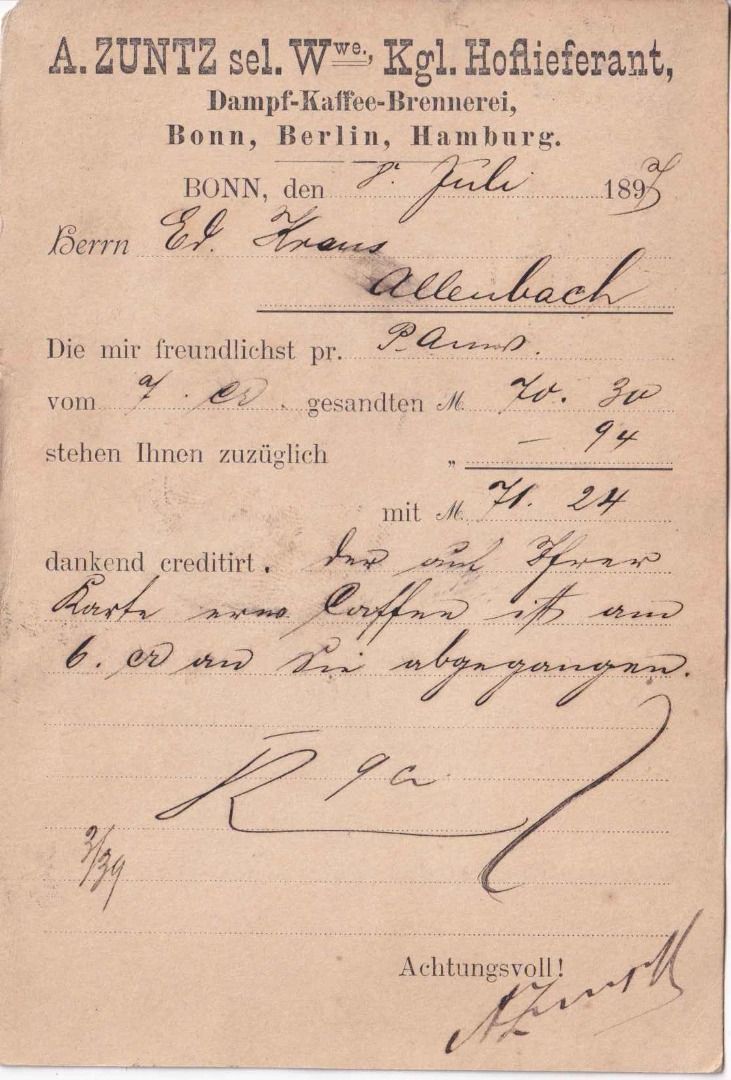 A. ZUNTZ sel. Wwe., Kgl. Hoflieferant,
Dampf-Kaffee-Brennerei,
Bonn, Berlin, Hamburg.
BONN, den 8. Juli 1897
Herrn Ed. Kraus
Allenbach
Die mir freundlichst pr. P. Anws.
vom 7. cr. gesandten M 70. 30
stehen Ihnen zuzüglich „ — 94
mit M 71. 24
dankend creditirt. Der auf Ihrer
Karte erw Caffee ist am
6. cr an Sie abgegangen.
3/39
Achtungsvoll!
A Zuntz